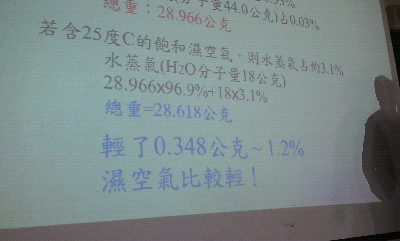 分子量44.0公克)占0.03%
總重：28.966公克
若含25度C的飽和濕空氣，則水蒸氣占約3.1%
水蒸氣(H2O分子量18公克)
28.966x96.9%+18x3.1%
總重=28.618公克
輕了0.348公克~1.2%
濕空氣比較輕！